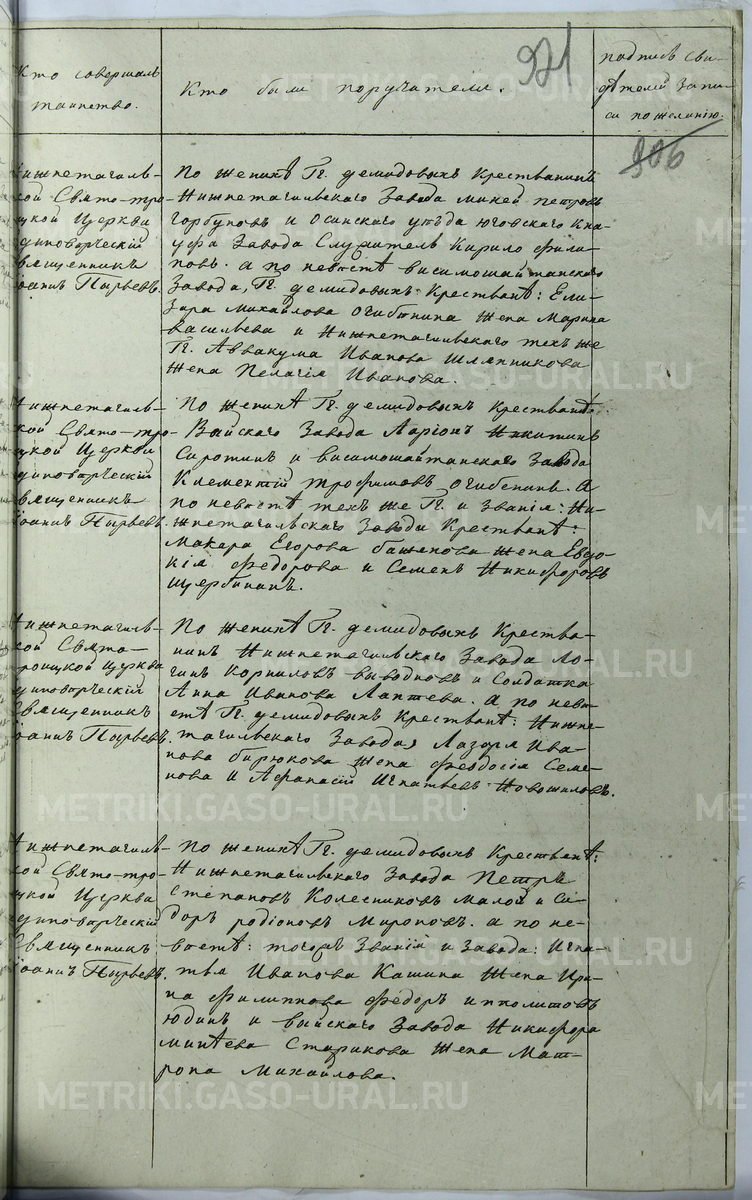 921
Кто совершалъ
таинство.
Кто были поручатели.
подпись сви-
дѣтелей запи-
си по желанію.
906
Нижнетагиль-
ской Свято-тро-
ицкой Церкви
Единоверческій
Священникъ
Іоаннъ Пырьевъ.
По женихѣ Гг. демидовыхъ Крестьянинъ
Нижнетагильскаго Завода Миней петровъ
горбуновъ и Осинскаго уѣзда юговскаго Кна-
уфа Завода Служитель Кирило Фили-
повъ. а по невѣстѣ висимошайтанскаго
Завода, Гг. демидовыхъ Крестьянъ: Ели-
зара михайлова Огибѣнина жена Марина
васильева и Нижнетагильскаго техъ же
Гг. Аввакума Иванова Шляпникова
жена Пелагія Иванова.
Нижнетагиль-
ской Свято-тро-
ицкой Церкви
Единоверческій
Священникъ
Іоаннъ Пырьевъ.
По женихѣ Гг. демидовыхъ Крестьянѣ:
Выйскаго Завода Ларіонъ Никитинъ
Сиротинъ и висимошайтанскаго Завода
Климентій трофимовъ Огибенинъ. А
по невѣстѣ техъ же Гг. и Званія: Ни-
жнетагильскаго Завода Крестьянъ:
Макера Егорова баженова жена Евдо-
кія Федорова и Семенъ Никифоровъ
Щербининъ.
Нижнетагиль-
ской Свято-
троицкой Церкви
Единоверческій
Священникъ
Іоаннъ Пырьевъ.
По женихѣ Гг. демидовыхъ Крестья-
нинъ Нижнетагильскаго Завода Ло-
гинъ Корниловъ выводновъ и Солдатка
Анна Иванова Лаптева. а по невѣ-
стѣ Гг. демидовыхъ Крестьянъ: Нижне-
тагильскаго Завода Лазаря Ива-
нова бирюкова жена Феодосія Семе-
нова и Афанасій Игнатьевъ Новошиловъ.
Нижнетагиль-
ской Свято-тро-
ицкой Церкви
Единоверческій
Священникъ
Іоаннъ Пырьевъ.
По женихѣ Гг. демидовыхъ Крестьянѣ:
Нижнетагильскаго Завода Петръ
Степановъ Колесниковъ Малой и Си-
доръ родіоновъ Мироновъ. а по не-
вѣстѣ: тогожъ Званія и Завода: Игна-
тья Иванова Кашина жена Ири-
на Филиппова Федоръ ипполитовъ
Юдинъ и выйскаго Завода Никифора
минѣева Старикова жена Мат-
рона Михайлова.
METRIKI.GASO-URAL.RU